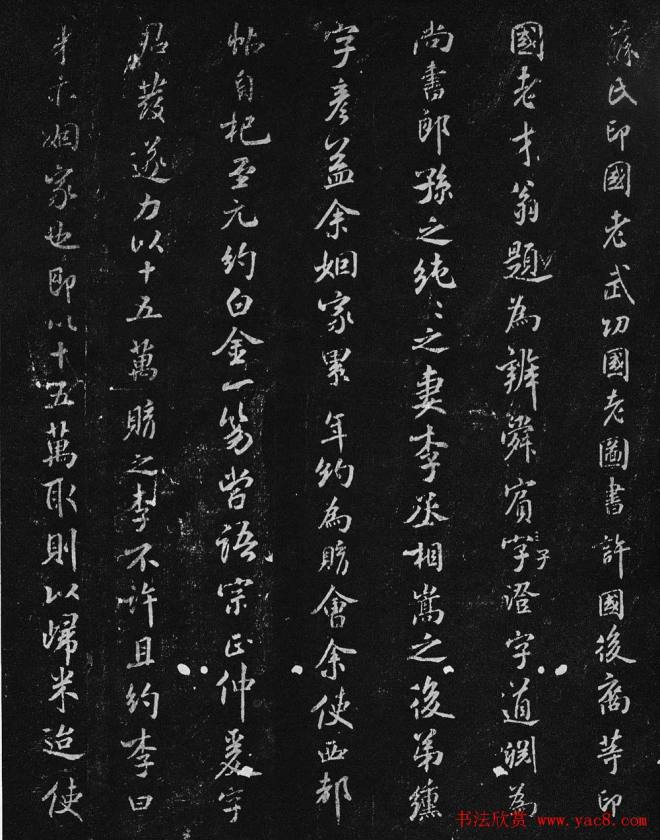 蘇氏印國老武功國老圖書許國後裔等印
國老才翁題為辨舜賓字子澄字道淵為
尚書郎孫之純〻之妻李丞相嵩之後弟纁
字彥益余姻家累年約為購會余使西都
帖自杞至元約白金一笏嘗語宗正仲爰字
君發遂力以十五萬購之李不許且約李曰
米亦姻家也即以十五萬取則以歸米迨使
书法欣赏 www.yac8.com